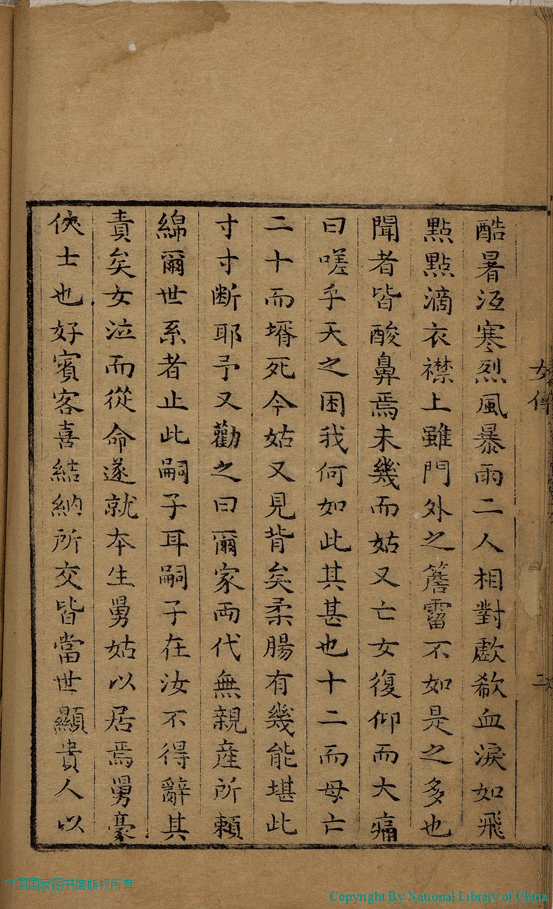 酷暑沍寒烈風暴雨二人相對歔欷血淚如飛
點點滴衣襟上雖門外之簷霤不如是之多也
聞者皆酸鼻焉未幾而姑又亡女復仰而大痛
曰嗟乎天之困我何如此其甚也十二而母亡
二十而壻死今姑又見背矣柔腸有幾能堪此
寸寸断耶予又勸之曰爾家兩代無親産所賴
綿爾世系者止此嗣子耳嗣子在汝不得辭其
責矣女泣而從命遂就本生舅姑以居焉舅豪
俠士也好賓客喜結納所交皆當世顯貴人以
中国国家图书馆版权所有
Copyright By National Library of China